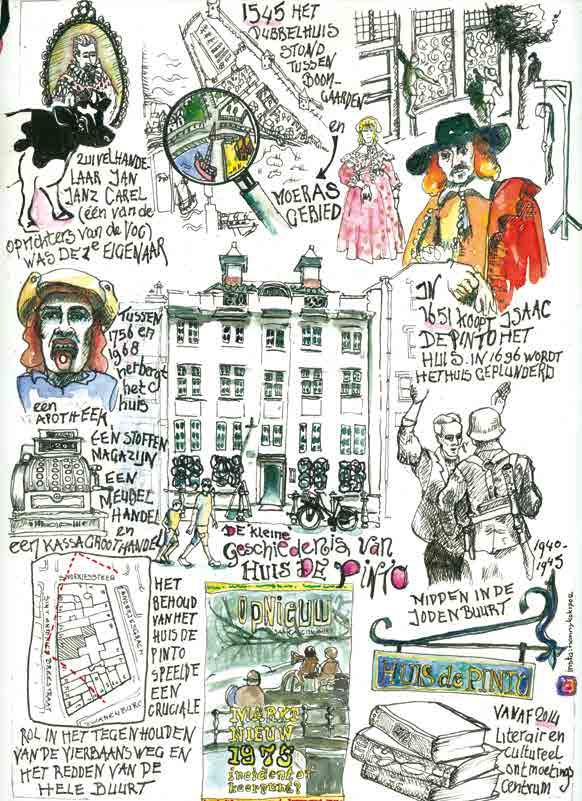 1545 HET
DUBBELHUIS
STOND
TUSSEN
BOOM-
GAARDEN
en
MOERAS
GEBIED
ZUIVELHANDE-
LAAR JAN
JANZ CAREL
(één van de
oprichters van de VOC)
WAS DE 1e EIGENAAR
IN
1651 KOOPT ISAAC
DE PINTO HET
HUIS. IN 1696 WORDT
HET HUIS GEPLUNDERD
TUSSEN
1756 en
1968
herbergt
het
huis
een
APOTHEEK,
EEN STOFFEN
MAGAZIJN
EEN
MEUBEL
HANDEL
en
een KASSAGROOTHANDEL
DE kleine
Geschiedenis van
HUIS DE PINTO
1940-
1945
MIDDEN IN DE
JODENBUURT
SINT ANTONIES BREESTRAAT
ZWANENBURG
HET
BEHOUD
VAN HET
HUIS DE
PINTO
SPEELDE
EEN
CRUCIALE
ROL IN HET TEGENHOUDEN
VAN DE VIERBAANSWEG EN
HET REDDEN VAN DE
HELE BUURT
OPNIEUW
MARKT
NIEUW
1975
incident of
keerpunt?
HUIS de PINTO
VANAF 2014
Literair en
cultureel
ontmoetings
Centrum